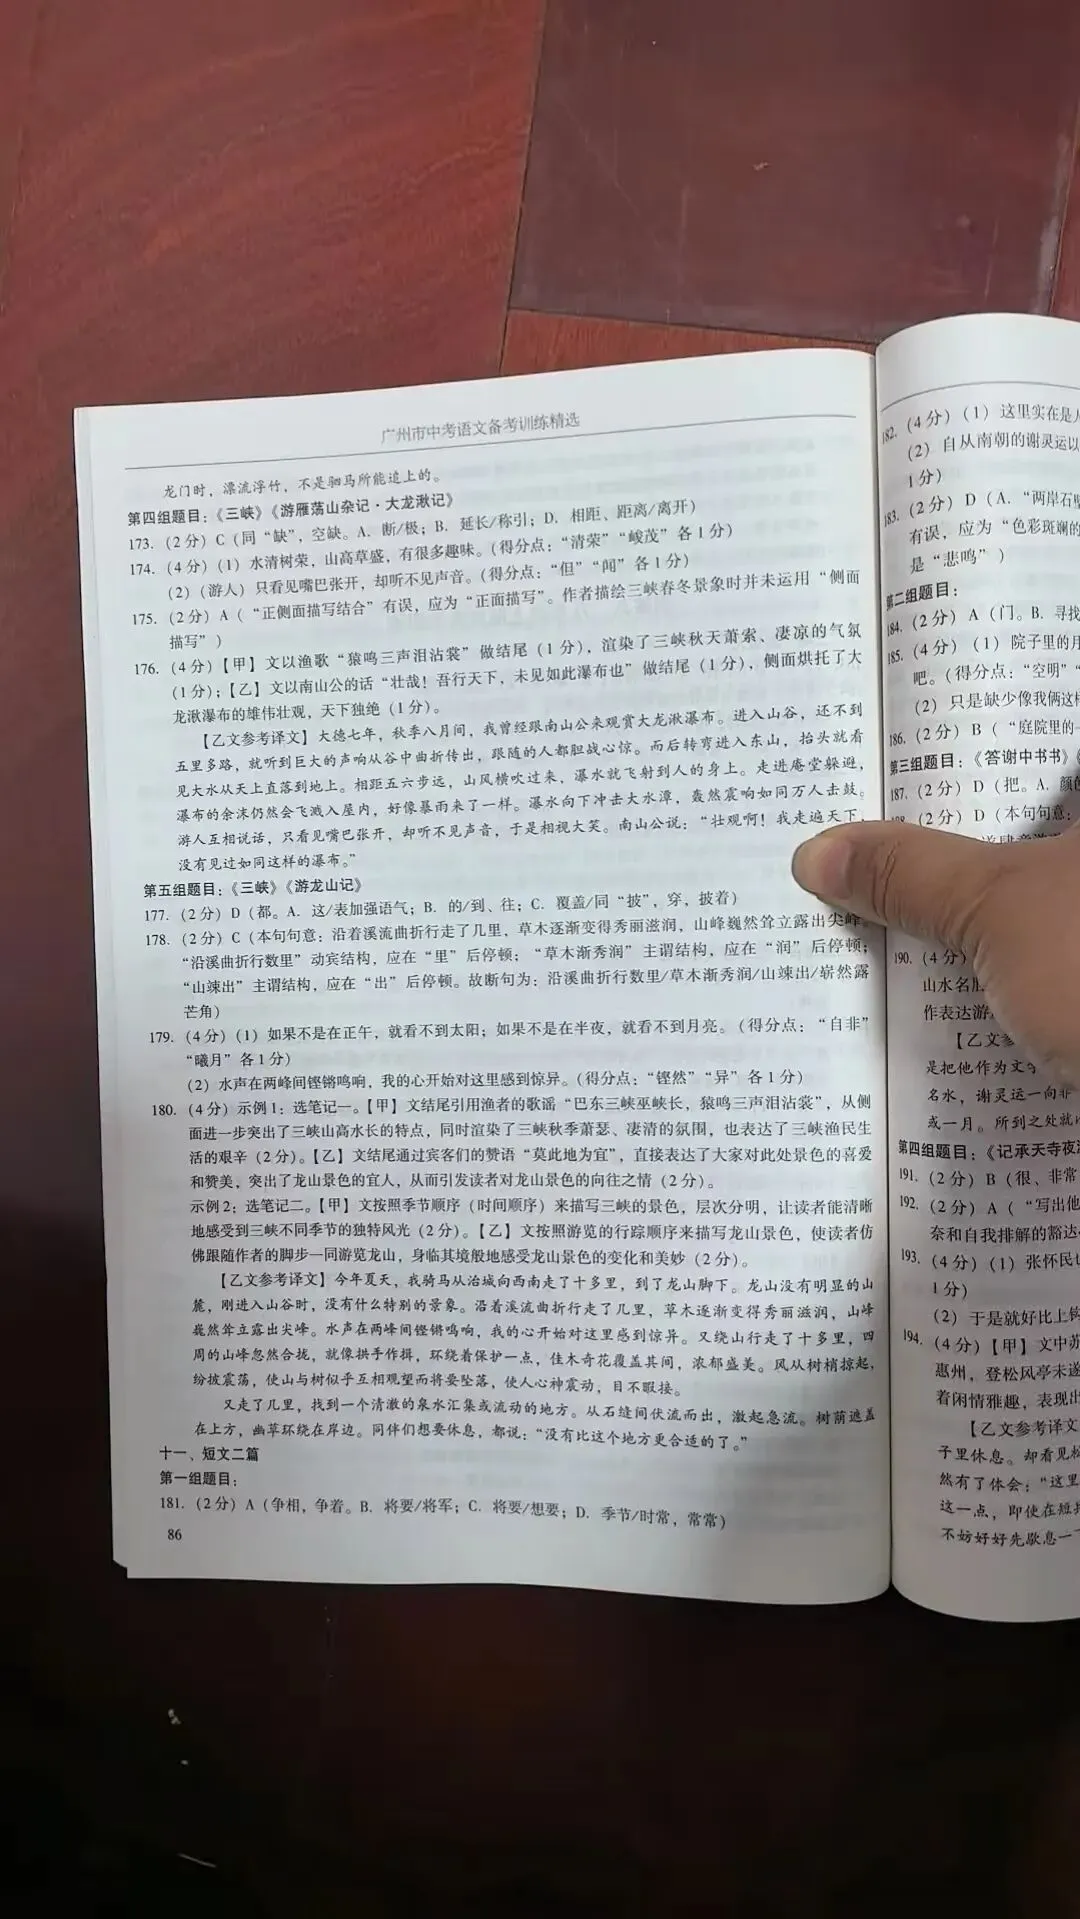 广州市中考语文备考训练精选
龙门时，漂流浮竹，不是驷马所能追上的。
第四组题目：《三峡》《游雁荡山杂记·大龙湫记》
173.（2分）C（同“缺”，空缺。A. 断/极；B. 延长/称引；D. 相距、距离/离开）
174.（4分）（1）水清树荣，山高草盛，有很多趣味。（得分点：“清荣”“峻茂”各1分）
（2）（游人）只看见嘴巴张开，却听不见声音。（得分点：“但”“闻”各1分）
175.（2分）A（“正侧面描写结合”有误，应为“正面描写”。作者描绘三峡春冬景象时并未运用“侧面
描写”）
176.（4分）【甲】文以渔歌“猿鸣三声泪沾裳”做结尾（1分），渲染了三峡秋天萧索、凄凉的气氛
（1分）；【乙】文以南山公的话“壮哉！吾行天下，未见如此瀑布也”做结尾（1分），侧面烘托了大
龙湫瀑布的雄伟壮观，天下独绝（1分）。
【乙文参考译文】大德七年，秋季八月间，我曾经跟南山公来观赏大龙湫瀑布。进入山谷，还不到
五里多路，就听到巨大的声响从谷中曲折传出，跟随的人都胆战心惊。而后转弯进入东山，抬头就看
见大水从天上直落到地上。相距五六步远，山风横吹过来，瀑水就飞射到人的身上。走进庵堂躲避，
瀑布的余沫仍然会飞溅入屋内，好像暴雨来了一样。瀑水向下冲击大水潭，轰然震响如同万人击鼓。
游人互相说话，只看见嘴巴张开，却听不见声音，于是相视大笑。南山公说：“壮观啊！我走遍天下，
没有见过如同这样的瀑布。”
第五组题目：《三峡》《游龙山记》
177.（2分）D（都。A. 这/表加强语气；B. 的/到、往；C. 覆盖/同“披”，穿，披着）
178.（2分）C（本句句意：沿着溪流曲折行走了几里，草木逐渐变得秀丽滋润，山峰巍然耸立露出尖峰。
“沿溪曲折行数里”动宾结构，应在“里”后停顿；“草木渐秀润”主谓结构，应在“润”后停顿；
“山竦出”主谓结构，应在“出”后停顿。故断句为：沿溪曲折行数里/草木渐秀润/山竦出/崭然露
芒角）
179.（4分）（1）如果不是在正午，就看不到太阳；如果不是在半夜，就看不到月亮。（得分点：“自非”
“曦月”各1分）
（2）水声在两峰间铿锵鸣响，我的心开始对这里感到惊异。（得分点：“铿然”“异”各1分）
180.（4分）示例1：选笔记一。【甲】文结尾引用渔者的歌谣“巴东三峡巫峡长，猿鸣三声泪沾裳”，从侧
面进一步突出了三峡山高水长的特点，同时渲染了三峡秋季萧瑟、凄清的氛围，也表达了三峡渔民生
活的艰辛（2分）。【乙】文结尾通过宾客们的赞语“莫此地为宜”，直接表达了大家对此处景色的喜爱
和赞美，突出了龙山景色的宜人，从而引发读者对龙山景色的向往之情（2分）。
示例2：选笔记二。【甲】文按照季节顺序（时间顺序）来描写三峡的景色，层次分明，让读者能清晰
地感受到三峡不同季节的独特风光（2分）。【乙】文按照游览的行踪顺序来描写龙山景色，使读者仿
佛跟随作者的脚步一同游览龙山，身临其境般地感受龙山景色的变化和美妙（2分）。
【乙文参考译文】今年夏天，我骑马从治城向西南走了十多里，到了龙山脚下。龙山没有明显的山
麓，刚进入山谷时，没有什么特别的景象。沿着溪流曲折行走了几里，草木逐渐变得秀丽滋润，山峰
巍然耸立露出尖峰。水声在两峰间铿锵鸣响，我的心开始对这里感到惊异。又绕山行走了十多里，四
周的山峰忽然合拢，就像拱手作揖，环绕着保护一点，佳木奇花覆盖其间，浓郁盛美。风从树梢掠起，
纷披震荡，使山与树似乎互相观望而将要坠落，使人心神震动，目不暇接。
又走了几里，找到一个清澈的泉水汇集或流动的地方。从石缝间伏流而出，激起急流。树荫遮盖
在上方，幽草环绕在岸边。同伴们想要休息，都说：“没有比这个地方更合适的了。”
十一、短文二篇
第一组题目：
181.（2分）A（争相，争着。B. 将要/将军；C. 将要/想要；D. 季节/时常，常常）
86
182.（4分）（1）这里实在是
（2）自从南朝的谢灵运以
1分）
183.（2分）D（A.“两岸石
有误，应为“色彩斑斓的
是“悲鸣”）
第二组题目：
184.（2分）A（门。B. 寻找
185.（4分）（1）院子里的月
吧。（得分点：“空明”
（2）只是缺少像我俩这样
186.（2分）B（“庭院里的
第三组题目：《答谢中书书》
187.（2分）D（把。A. 颜色
（2分）D（本句句意：
190.（4分）
山水名胜
作表达游
【乙文参
是把他作为文
名水，谢灵运一向非
或一月。所到之处就
第四组题目：《记承天寺夜游
191.（2分）B（很、非常
192.（2分）A（“写出他
奈和自我排解的豁达
193.（4分）（1）张怀民
1分）
（2）于是就好比上钩
194.（4分）【甲】文中苏
惠州，登松风亭未遂
着闲情雅趣，表现出
【乙文参考译文
子里休息。却看见松
然有了体会：“这里
这一点，即使在短
不妨好好先歇息一下